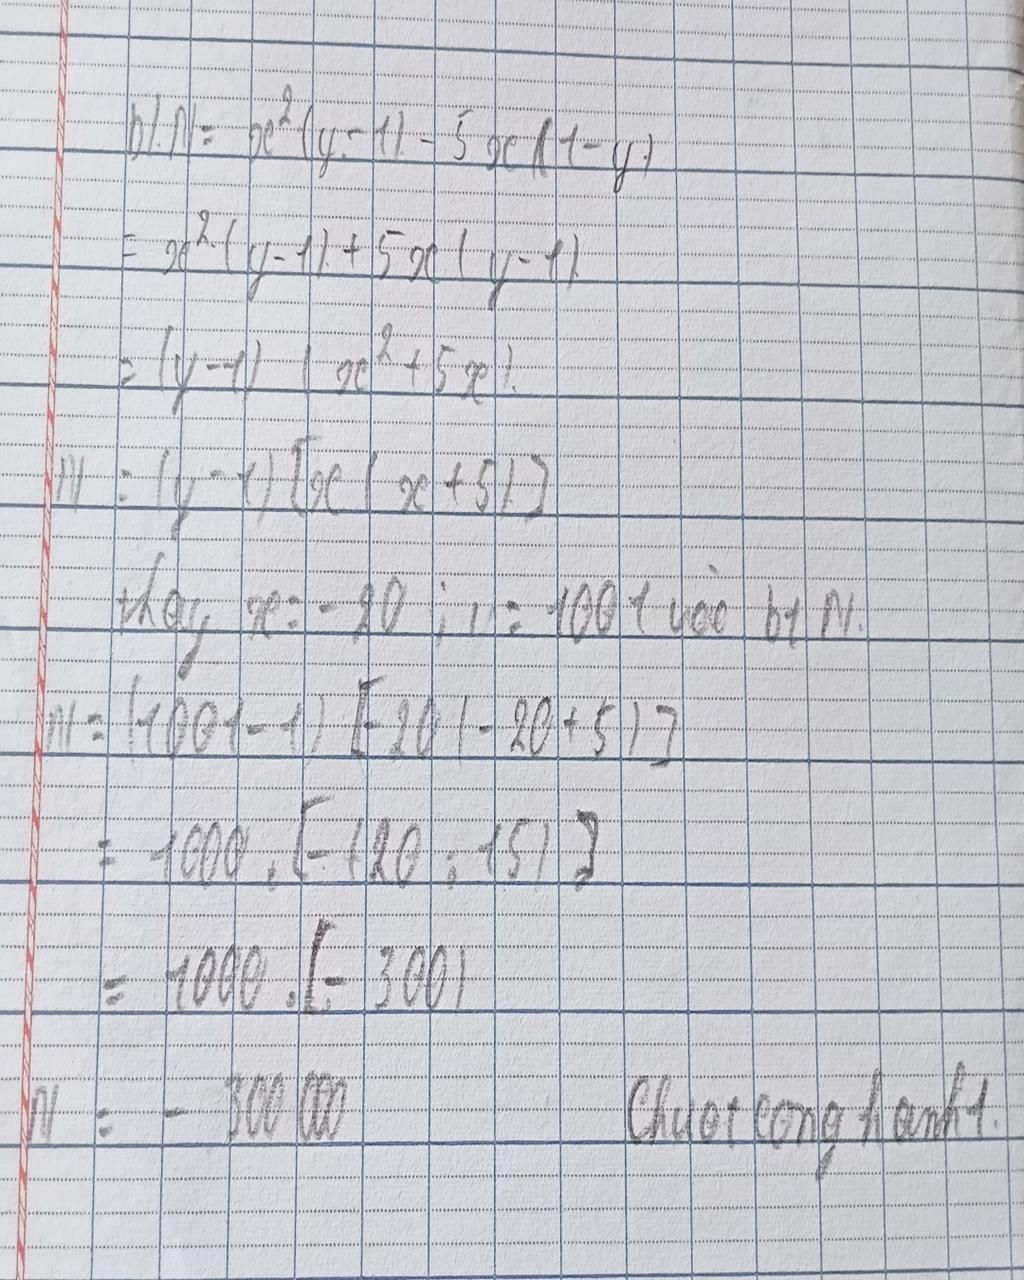 b). N = x²(y-1) - 5x(1-y)
= x²(y-1) + 5x(y-1)
= (y-1) (x² + 5x).
N = (y-1) [x(x+5)]
thay x = -20 ; y = 1001 vào bt N.
N = (1001-1) [-20(-20+5)]
= 1000 . [-(20 . 15)]
= 1000 . [-300)
N = - 300 000